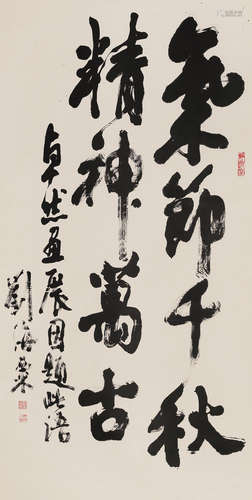 氣節千秋
精神萬古
卓然畫展因題此語
劉海粟